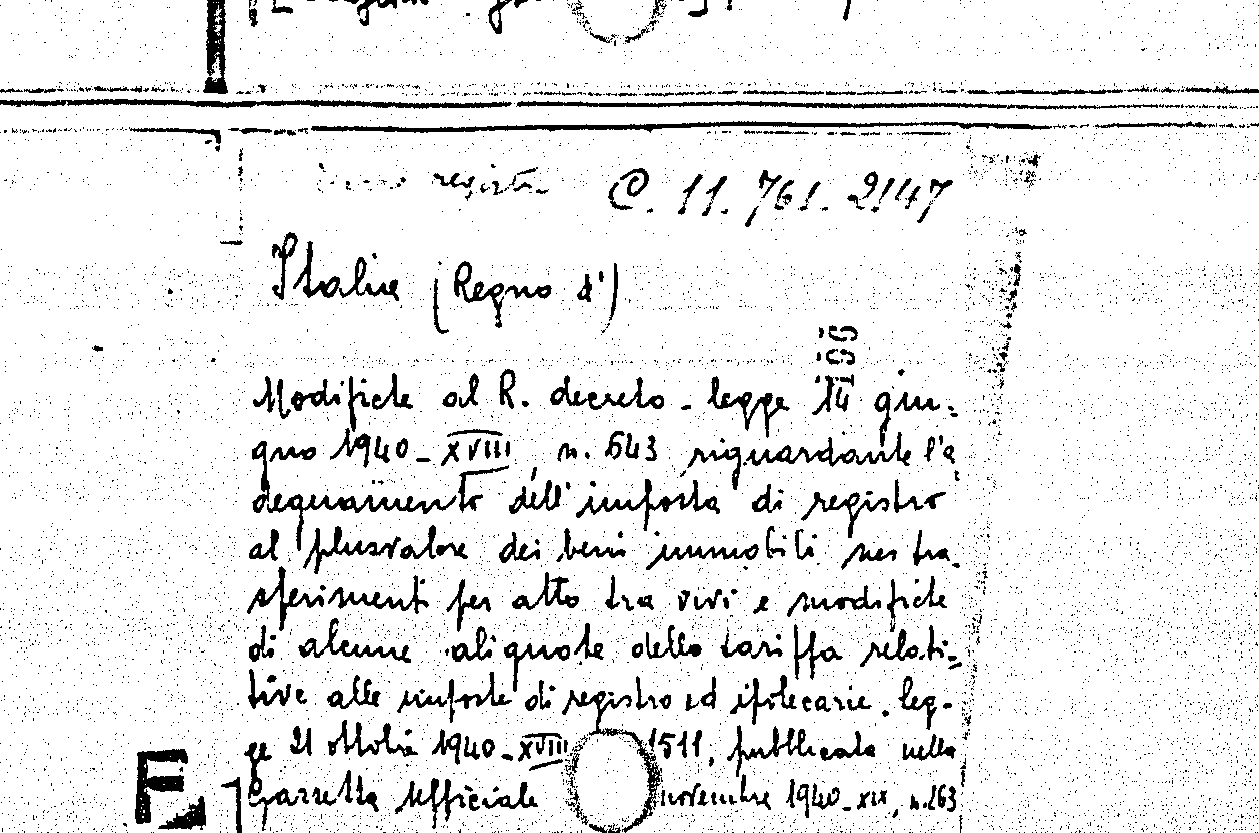 registro C. 11. 761. 2147
Italia (Regno d')
100
Modifiche al R. decreto-legge 14 giu=
gno 1940-XVIII, n. 643 riguardante l'a
deguamento dell'imposta di registro
al plusvalore dei beni immobili nei tra-
sferimenti per atto tra vivi e modifiche
di alcune aliquote della tariffa relati=
tive alle imposte di registro ed ipotecarie. leg-
ge 21 ottobre 1940-XVIII 1511, pubblicata nella
Gazzetta Ufficiale novembre 1940-XIX, n. 263